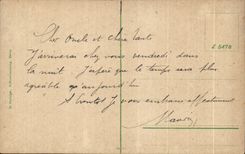 Cher Oncle et Chère Tante
J'arriverai chez vous vendredi dans
la nuit. J'espère que le temps sera plus
agréable qu'aujourd'hui
A bientôt je vous embrasse affectueusement
E 5878